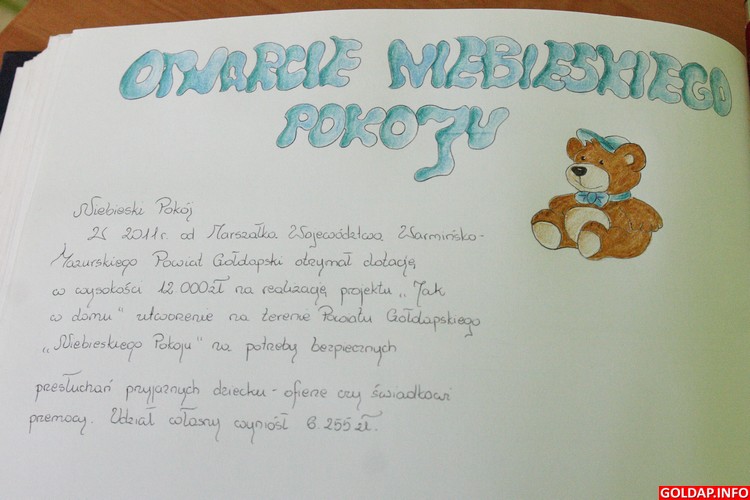 OTWARCIE NIEBIESKIEGO
POKOJU
Niebieski Pokój
W 2011r. od Marszałka Województwa Warmińsko-
Mazurskiego Powiat Gołdapski otrzymał dotację
w wysokości 12 000zł na realizację projektu „Jak
w domu" utworzenie na terenie Powiatu Gołdapskiego
„Niebieskiego Pokoju" na potrzeby bezpiecznych
przesłuchań przyjaznych dziecku - ofierze czy świadkowi
przemocy. Udział własny wyniósł 6.255 zł.
GOLDAP.INFO